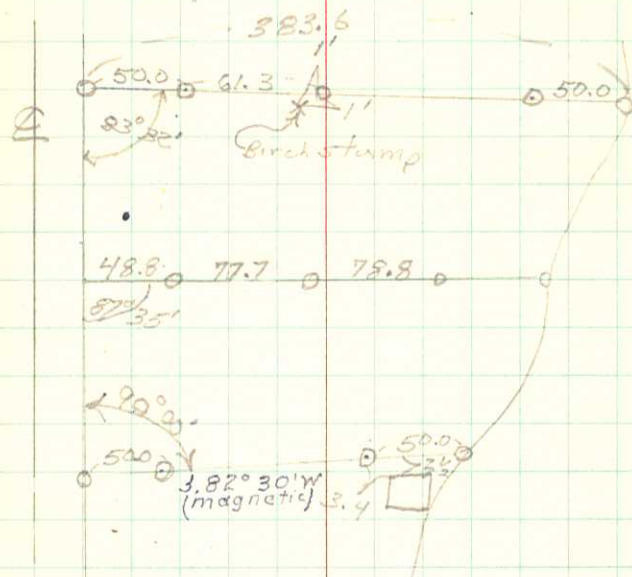 383.6
1'
50.0 61.3 50.0
1'
83° 32'
℄
Birch stump
48.8 77.7 78.8
87° 35'
90°
50.0 50.0
S.82°30'W
(magnetic) 3.4